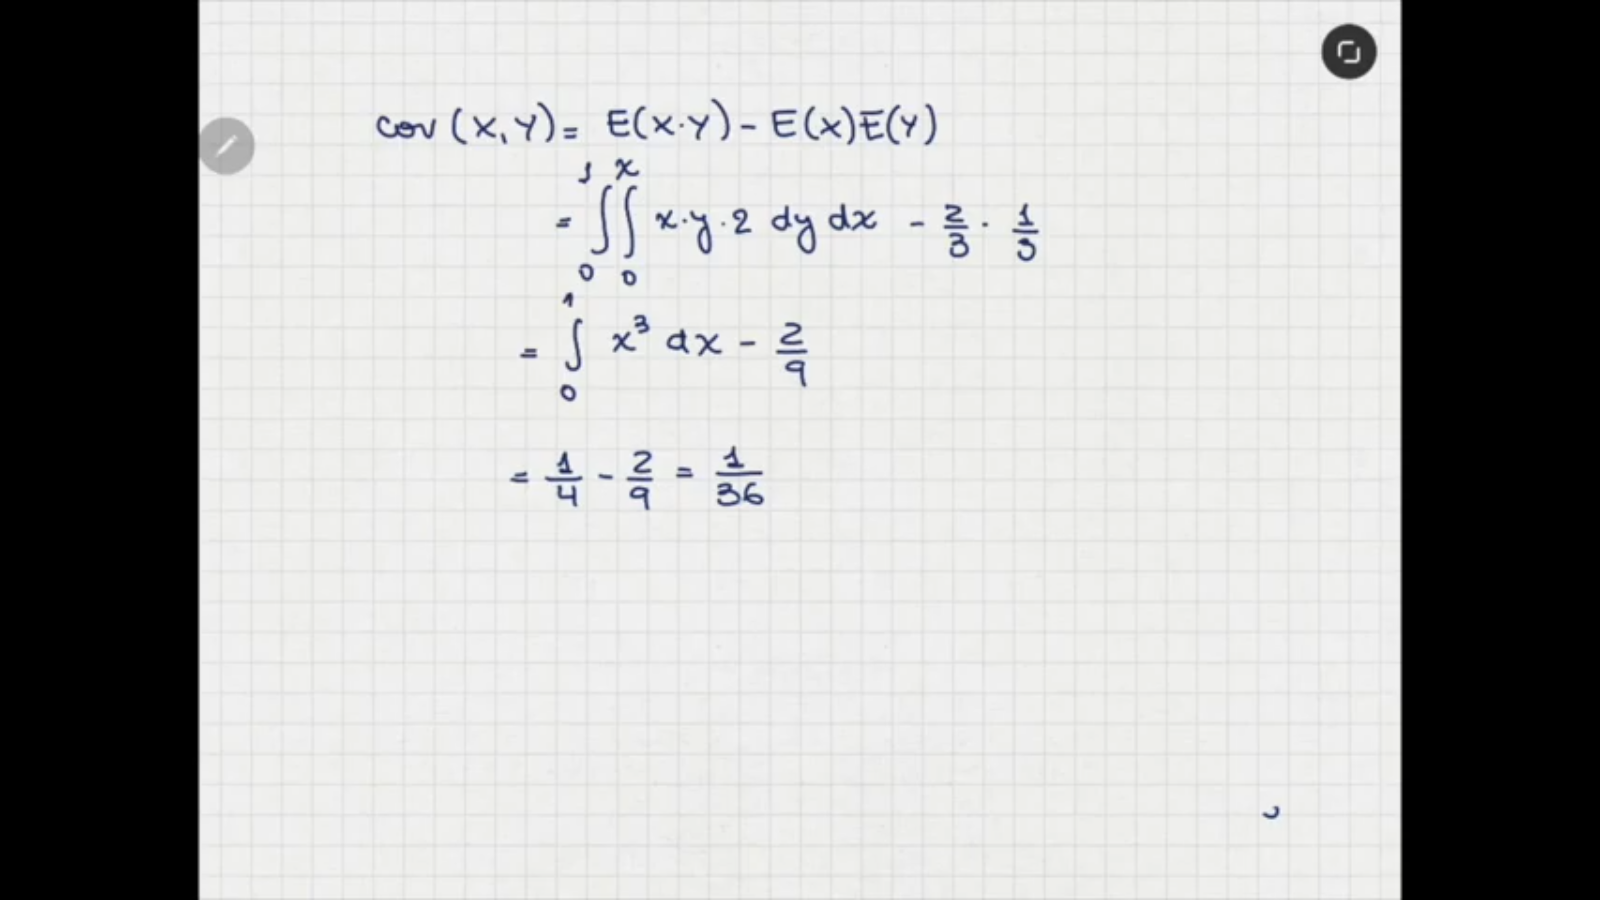 cov (X, Y) = E(X·Y) - E(X)E(Y)
= ∫₀¹ ∫₀ˣ x·y·2 dy dx - 2/3 · 1/3
= ∫₀¹ x³ dx - 2/9
= 1/4 - 2/9 = 1/36